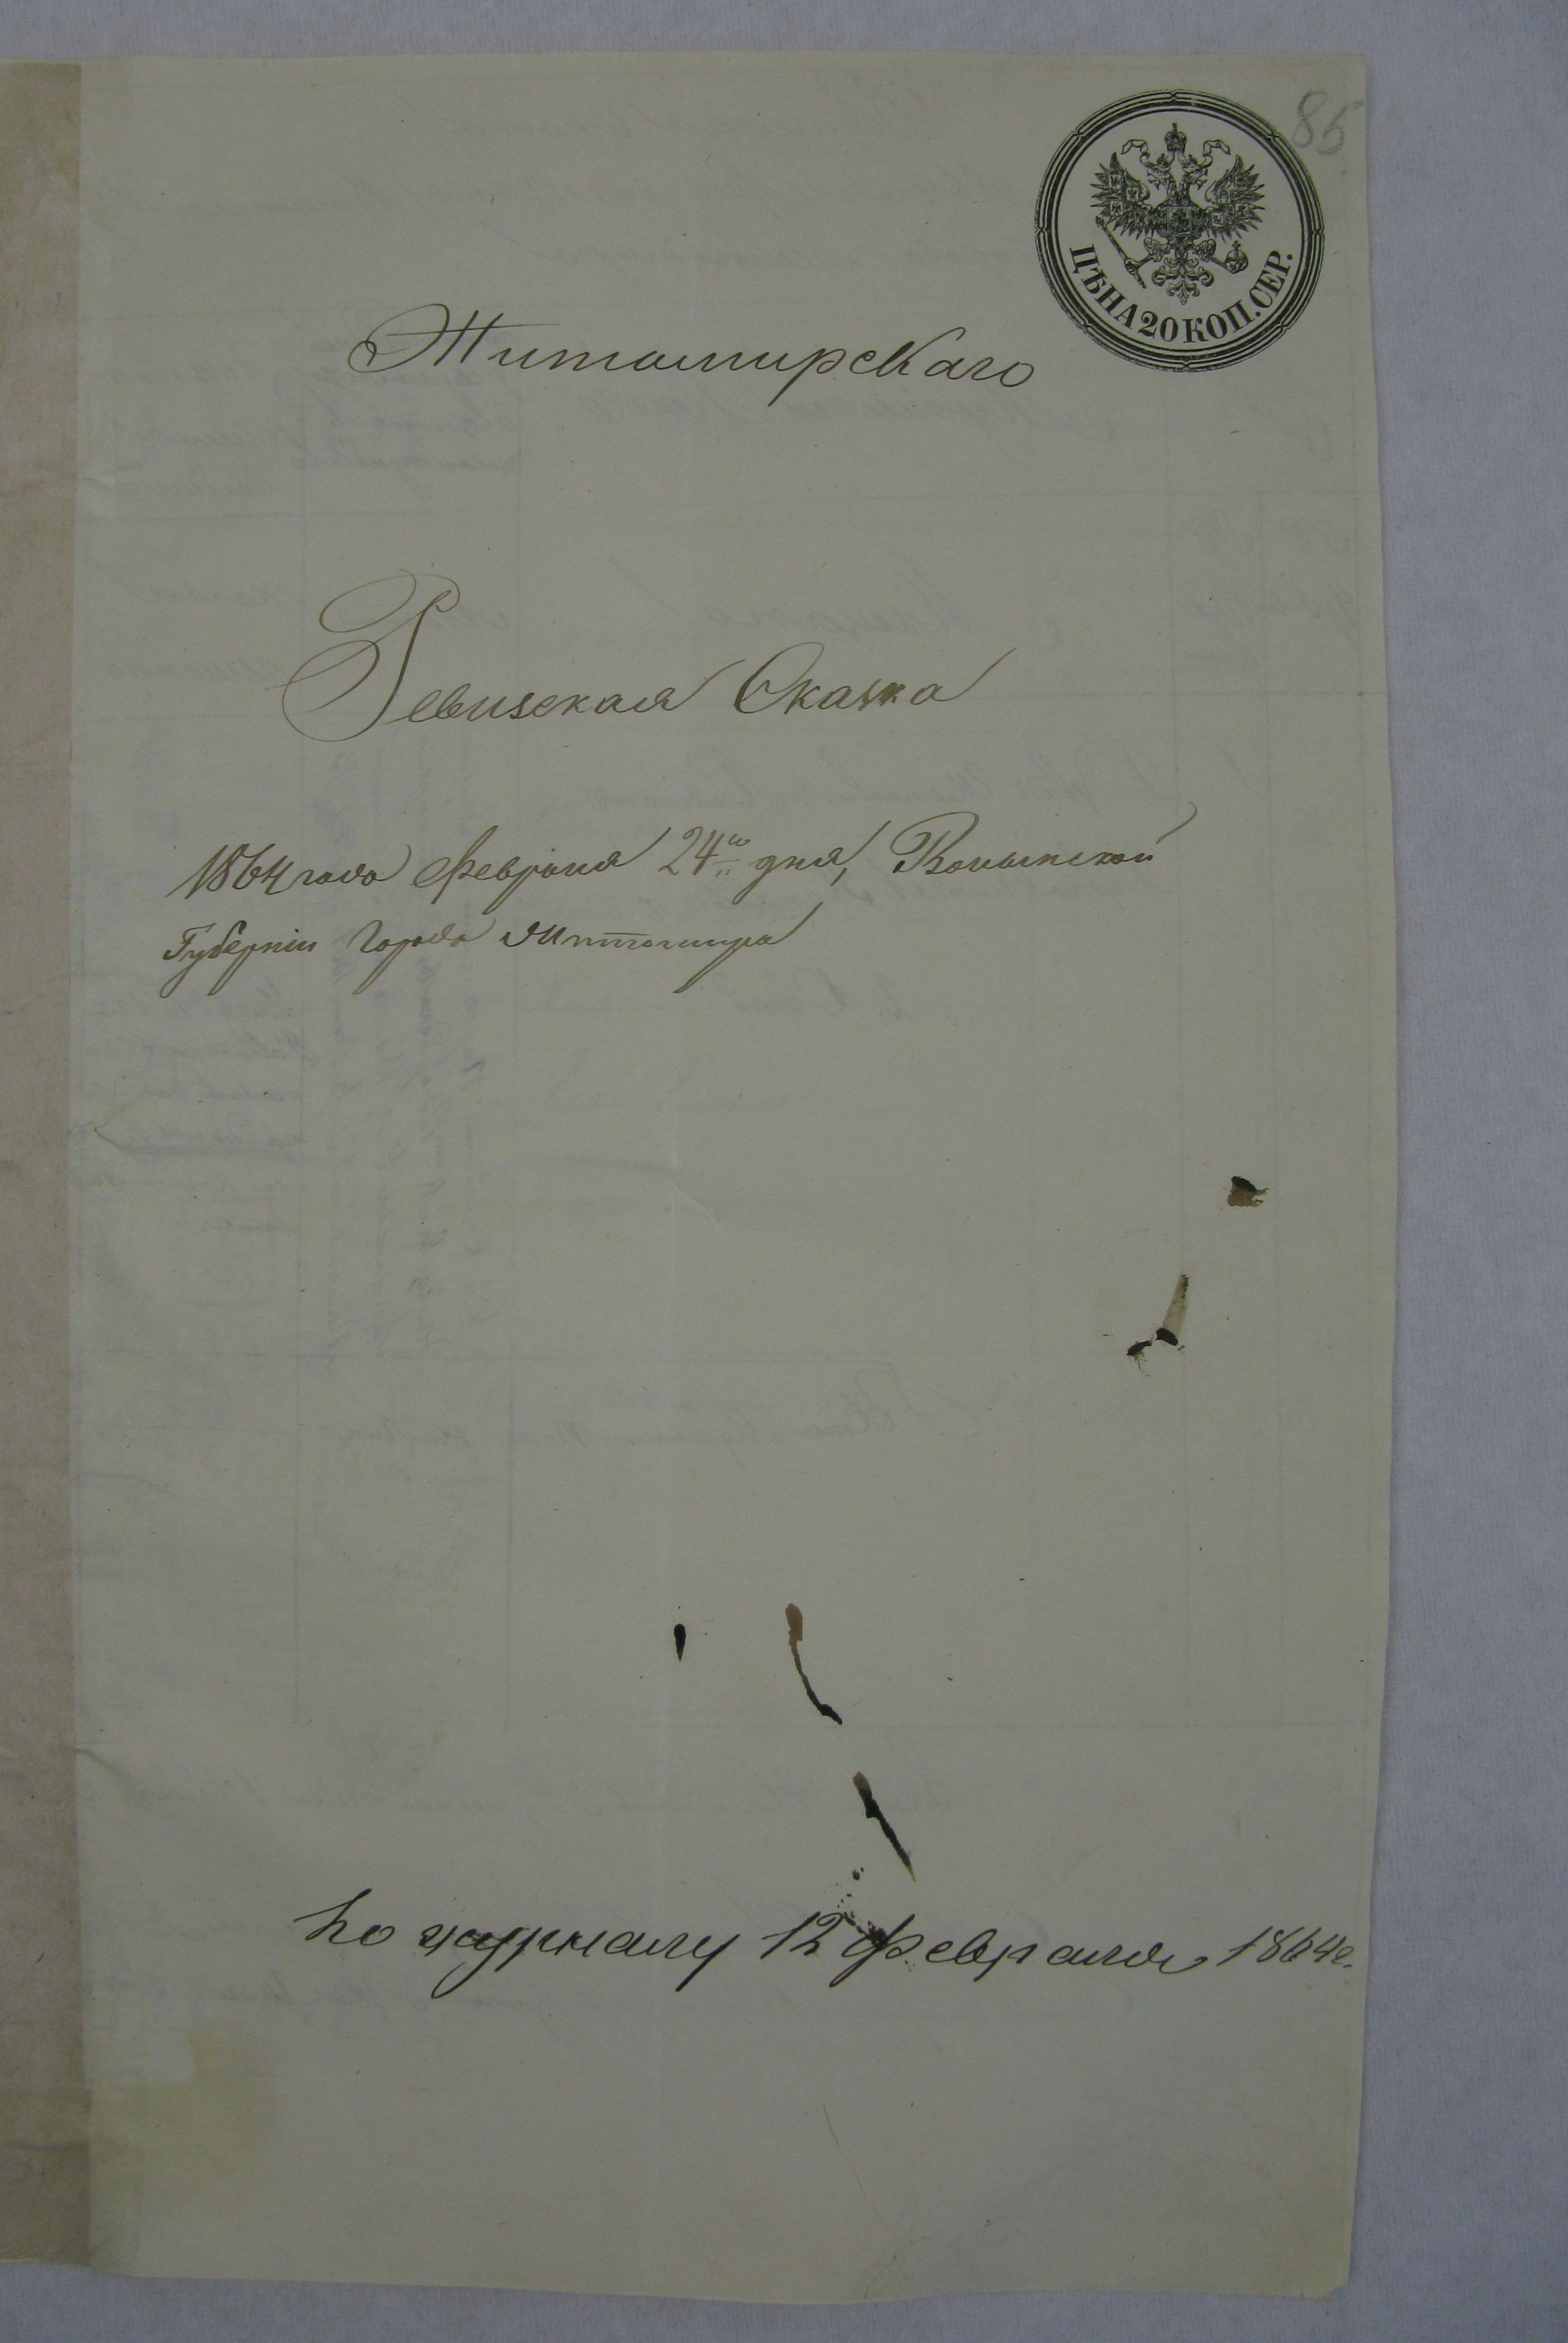 85
ЦѢНА 20 КОП. СЕР.
Житомирскаго
Ревизская Сказка
1864 года Февраля 24го дня, Волынской
Губерніи Города Житомира
по журналу 12 Февраля 1864 г.